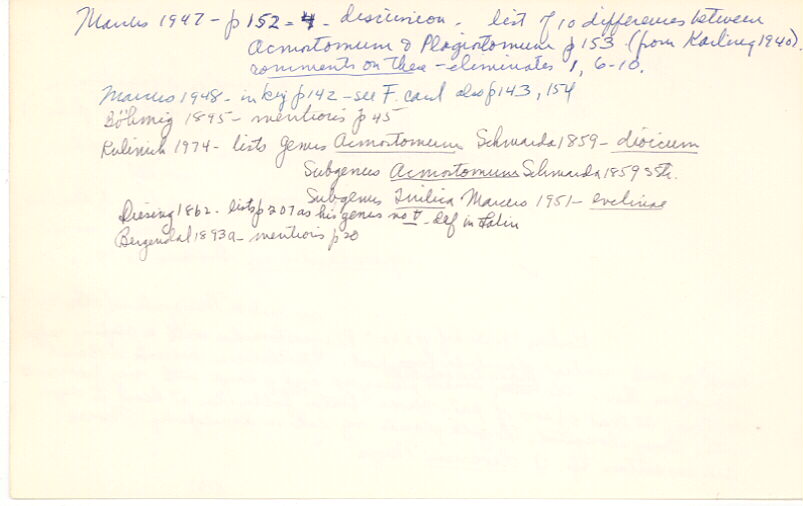 Marcus 1947 - p 152-4 - discussion - list of 10 differences between
Acmostomum & Plagiostomum p 153 (from Karling 1940).
comments on these - eliminates 1, 6-10.
Marcus 1948 - in key p 142 - see F. card also p 143, 154
Böhmig 1895 - mentions p 45
Kulinich 1974 - lists genus Acmostomum Schmarda 1859 - dioicum
Subgenus Acmostomum Schmarda 1859 s str.
Subgenus Inilica Marcus 1951 - evelinae
Diesing 1862 - lists p 207 as his genus no V - def in Latin
Bergendal 1893a - mentions p 20